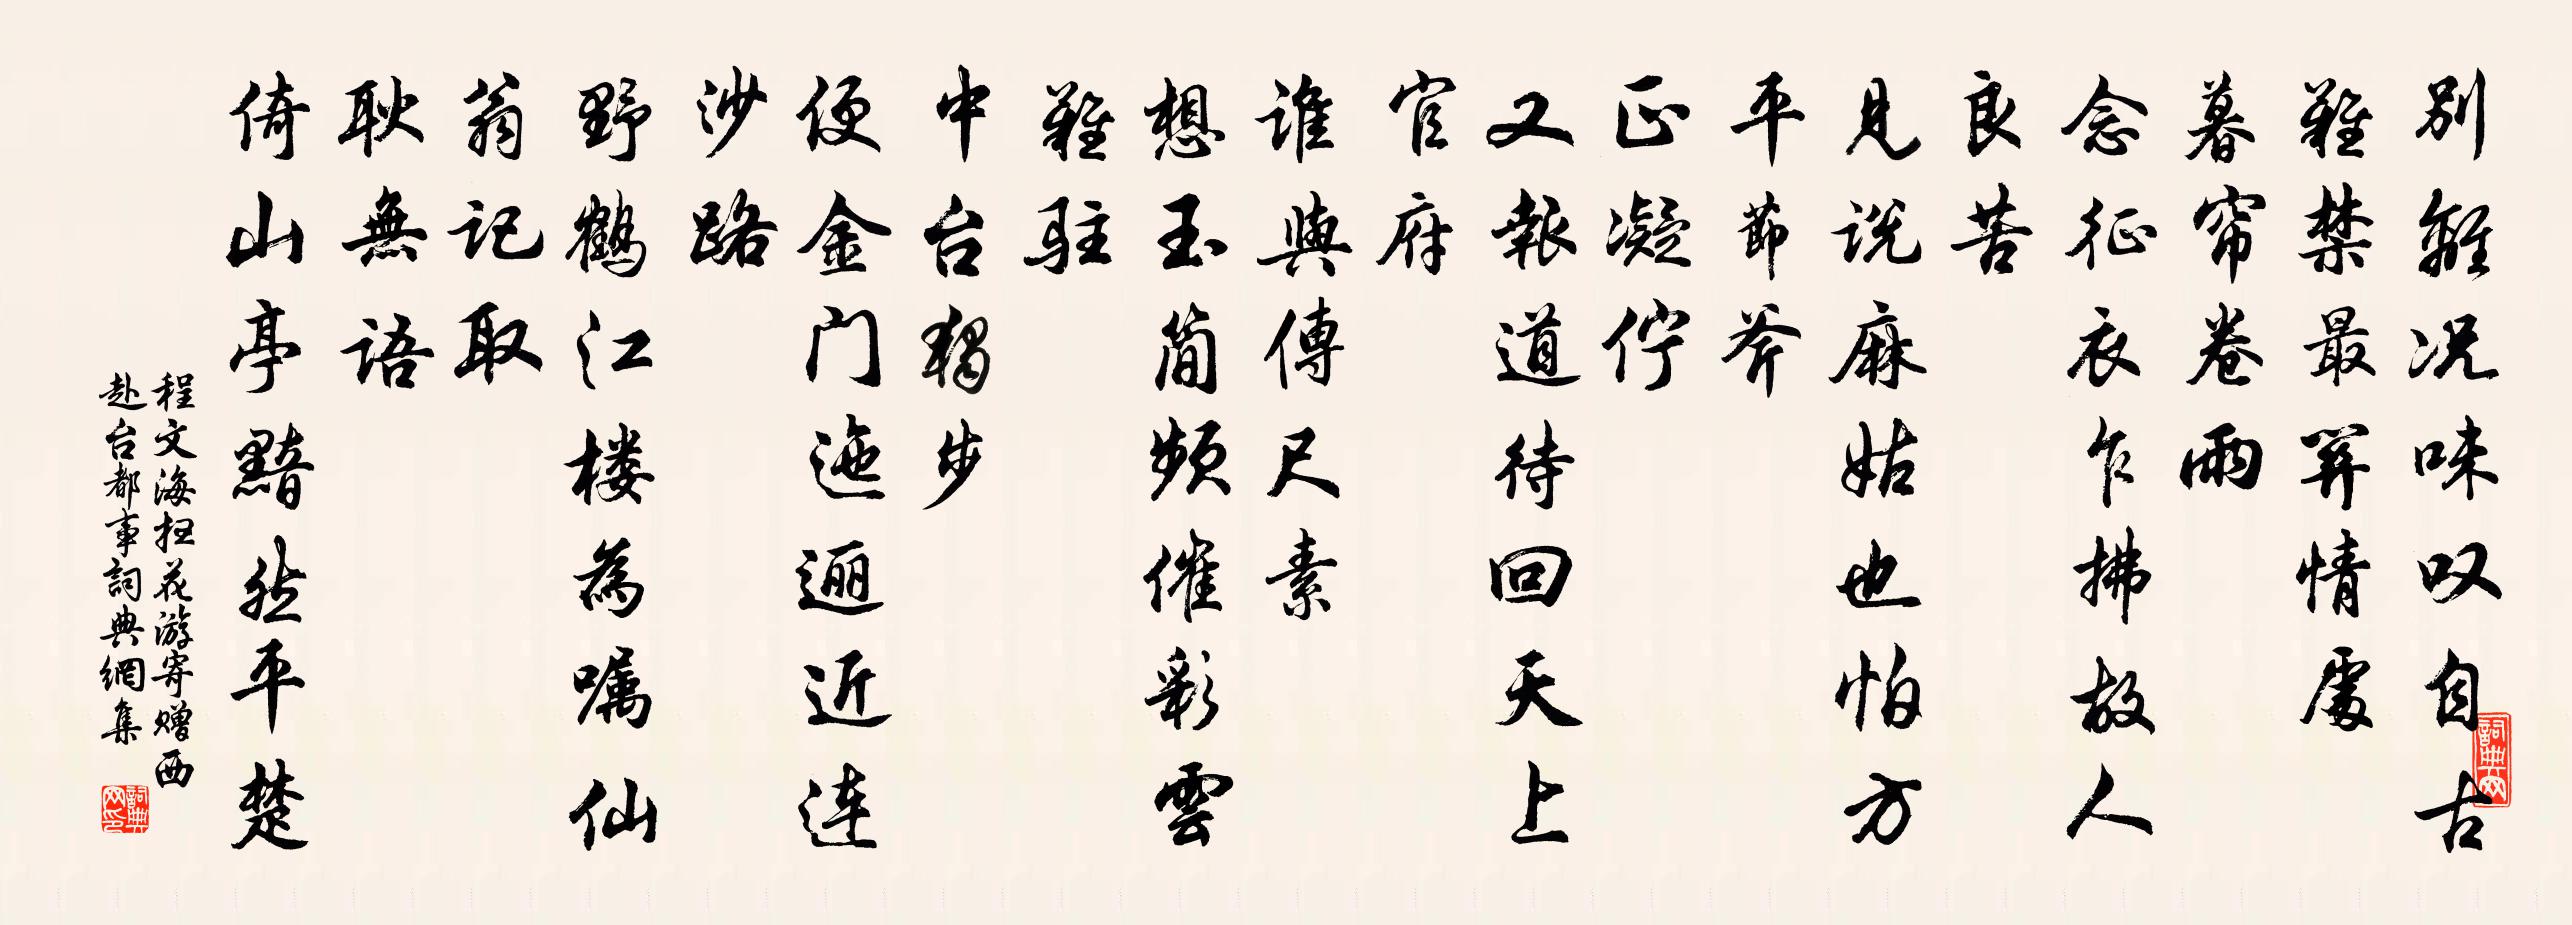 别離况味叹自古
難禁最罥情處
暮帘卷雨
念征衣乍拂故人
良苦
見说麻姑也怕方
平節斧
正凝伫
又報道待回天上
官府
谁與傳尺素
想玉简频催彩雲
難駐
中台獨步
便金门迤逦近连
沙路
野鶴江楼為嘱仙
翁记取
耿無语
倚山亭黯然平楚
程文海扫花游寄赠西
赴台都事詞典網集
詞典网
詞典网印